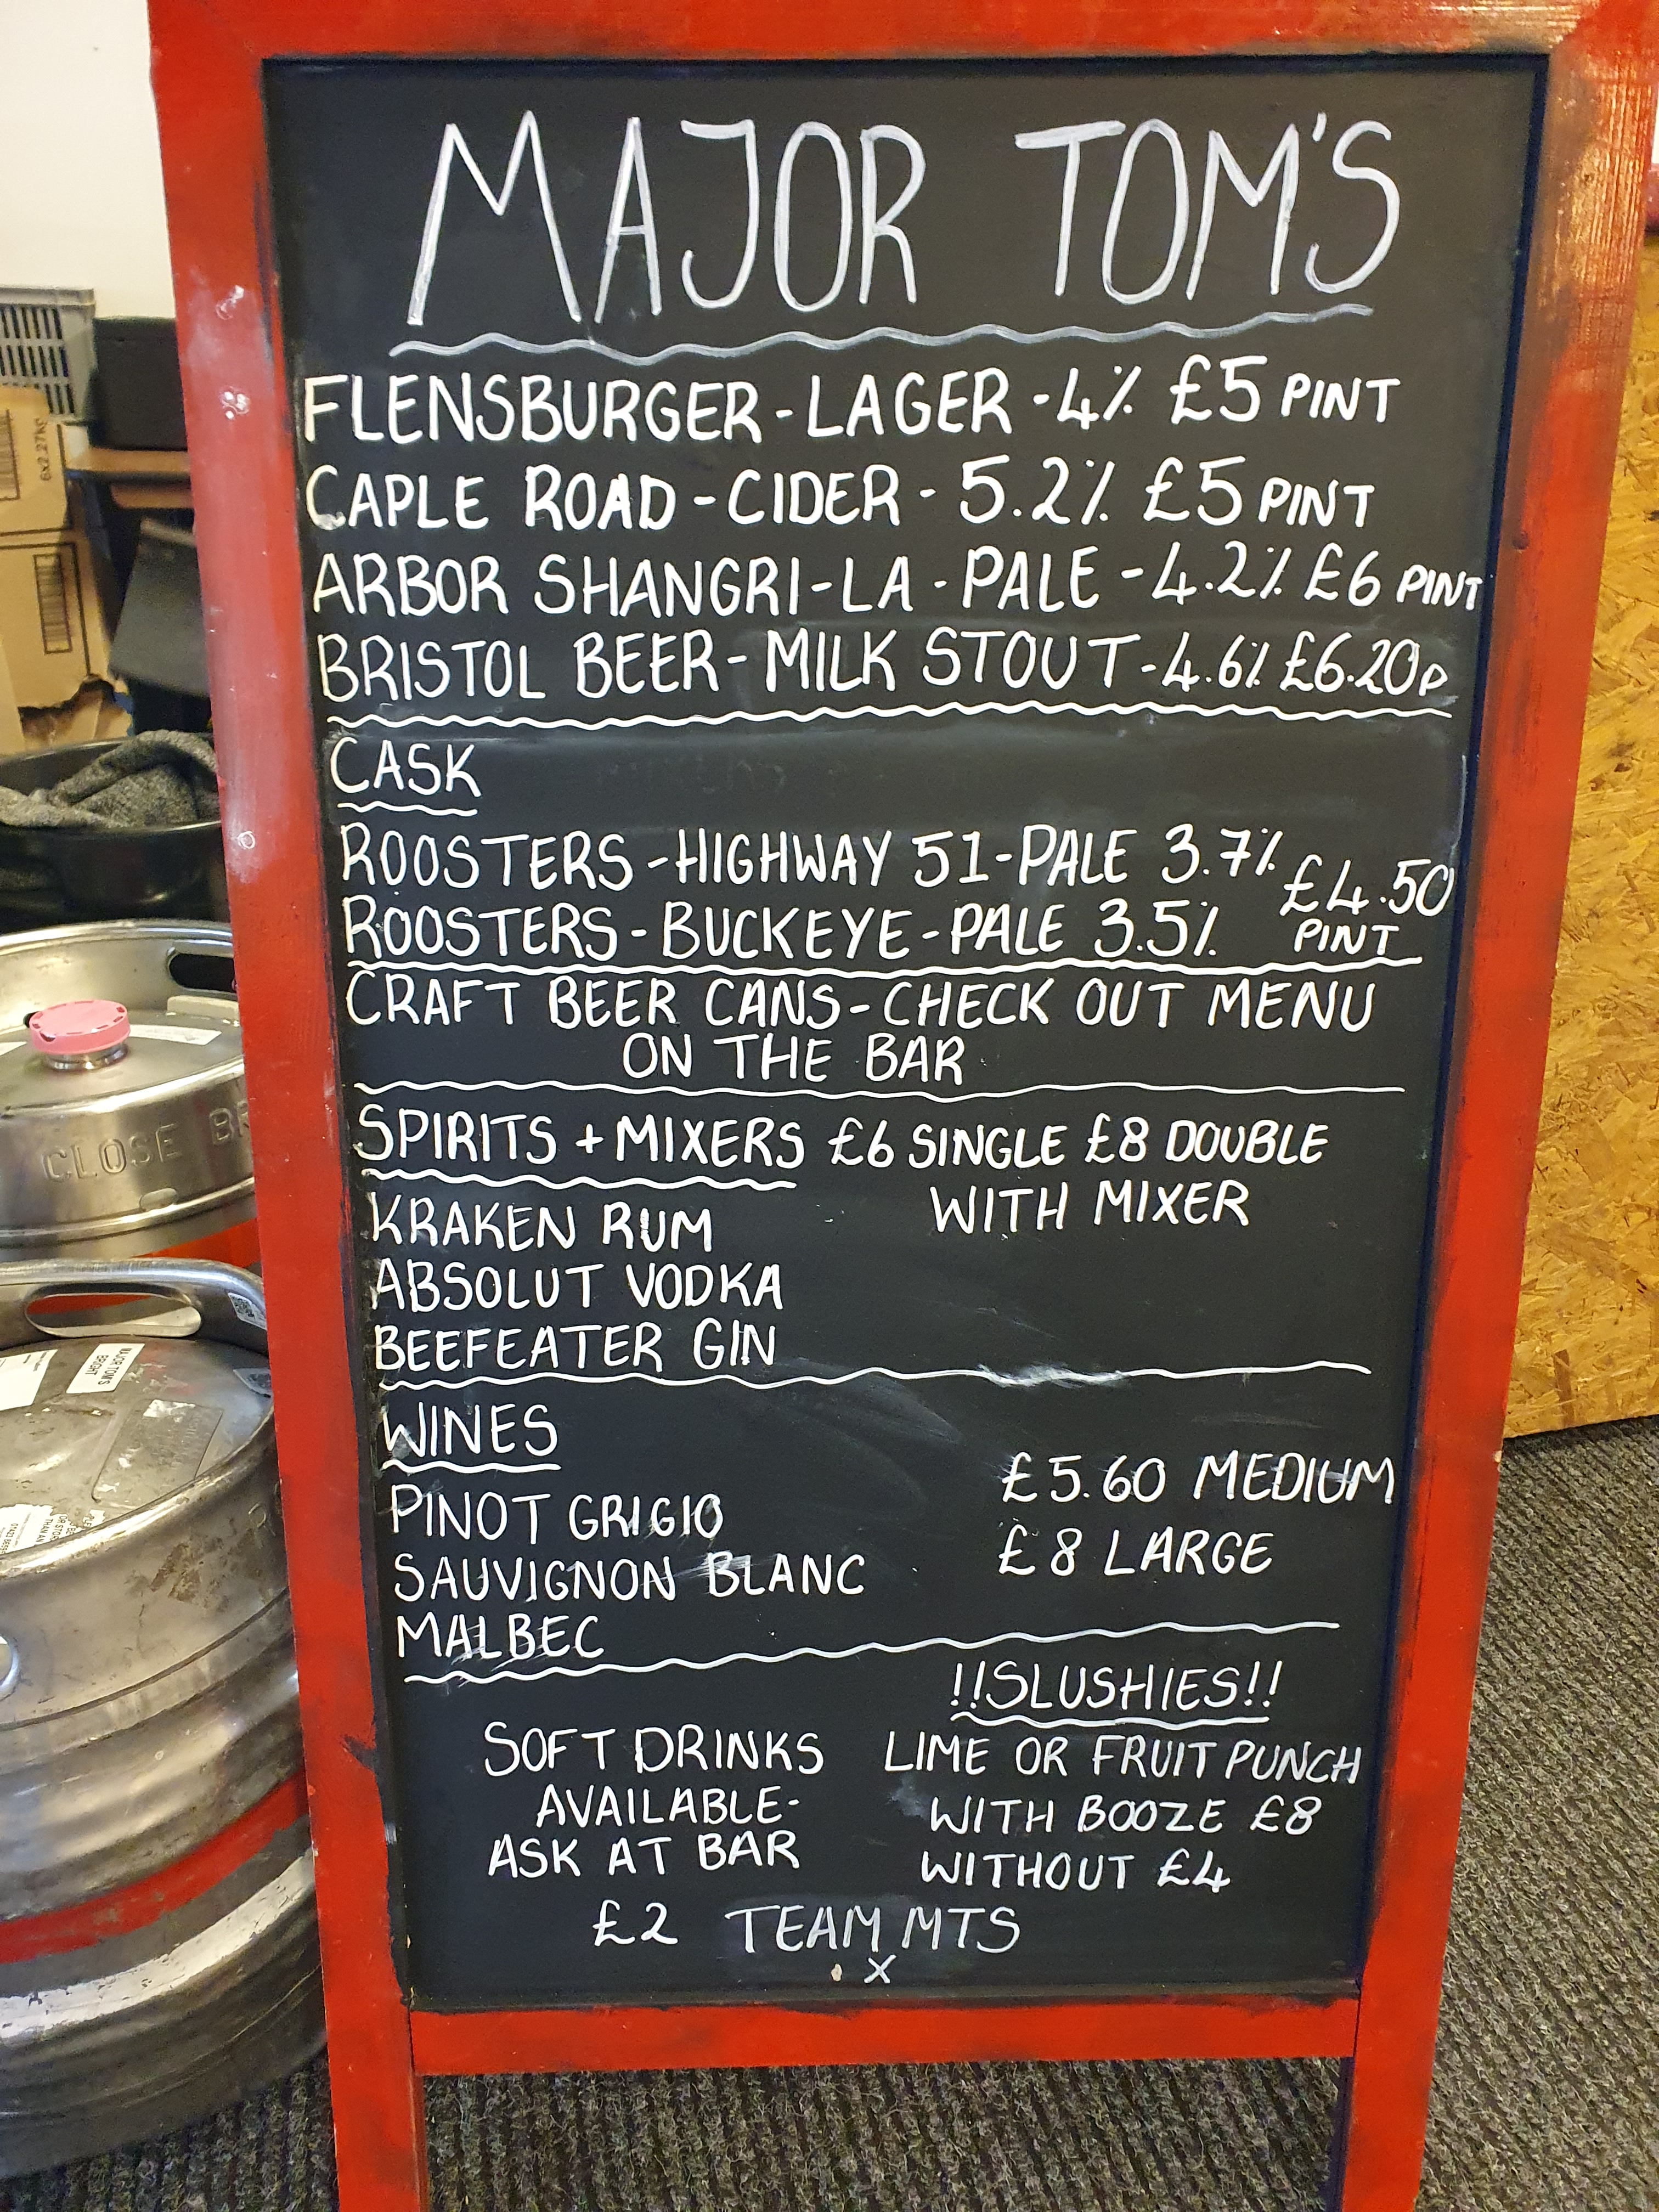 MAJOR TOM'S
FLENSBURGER-LAGER-4% £5 PINT
CAPLE ROAD-CIDER-5.2% £5 PINT
ARBOR SHANGRI-LA-PALE-4.2% £6 PINT
BRISTOL BEER-MILK STOUT-4.6% £6.20p
CASK
ROOSTERS-HIGHWAY 51-PALE 3.7%
£4.50
ROOSTERS-BUCKEYE-PALE 3.5%
PINT
CRAFT BEER CANS-CHECK OUT MENU
ON THE BAR
SPIRITS + MIXERS £6 SINGLE £8 DOUBLE
WITH MIXER
KRAKEN RUM
ABSOLUT VODKA
BEEFEATER GIN
WINES
£5.60 MEDIUM
PINOT GRIGIO
£8 LARGE
SAUVIGNON BLANC
MALBEC
!!SLUSHIES!!
LIME OR FRUIT PUNCH
WITH BOOZE £8
WITHOUT £4
SOFT DRINKS
AVAILABLE-
ASK AT BAR
£2 TEAM MTS
X
6x2.27kg
CLOSE BR
MAJOR TOM'S
BRIGHT